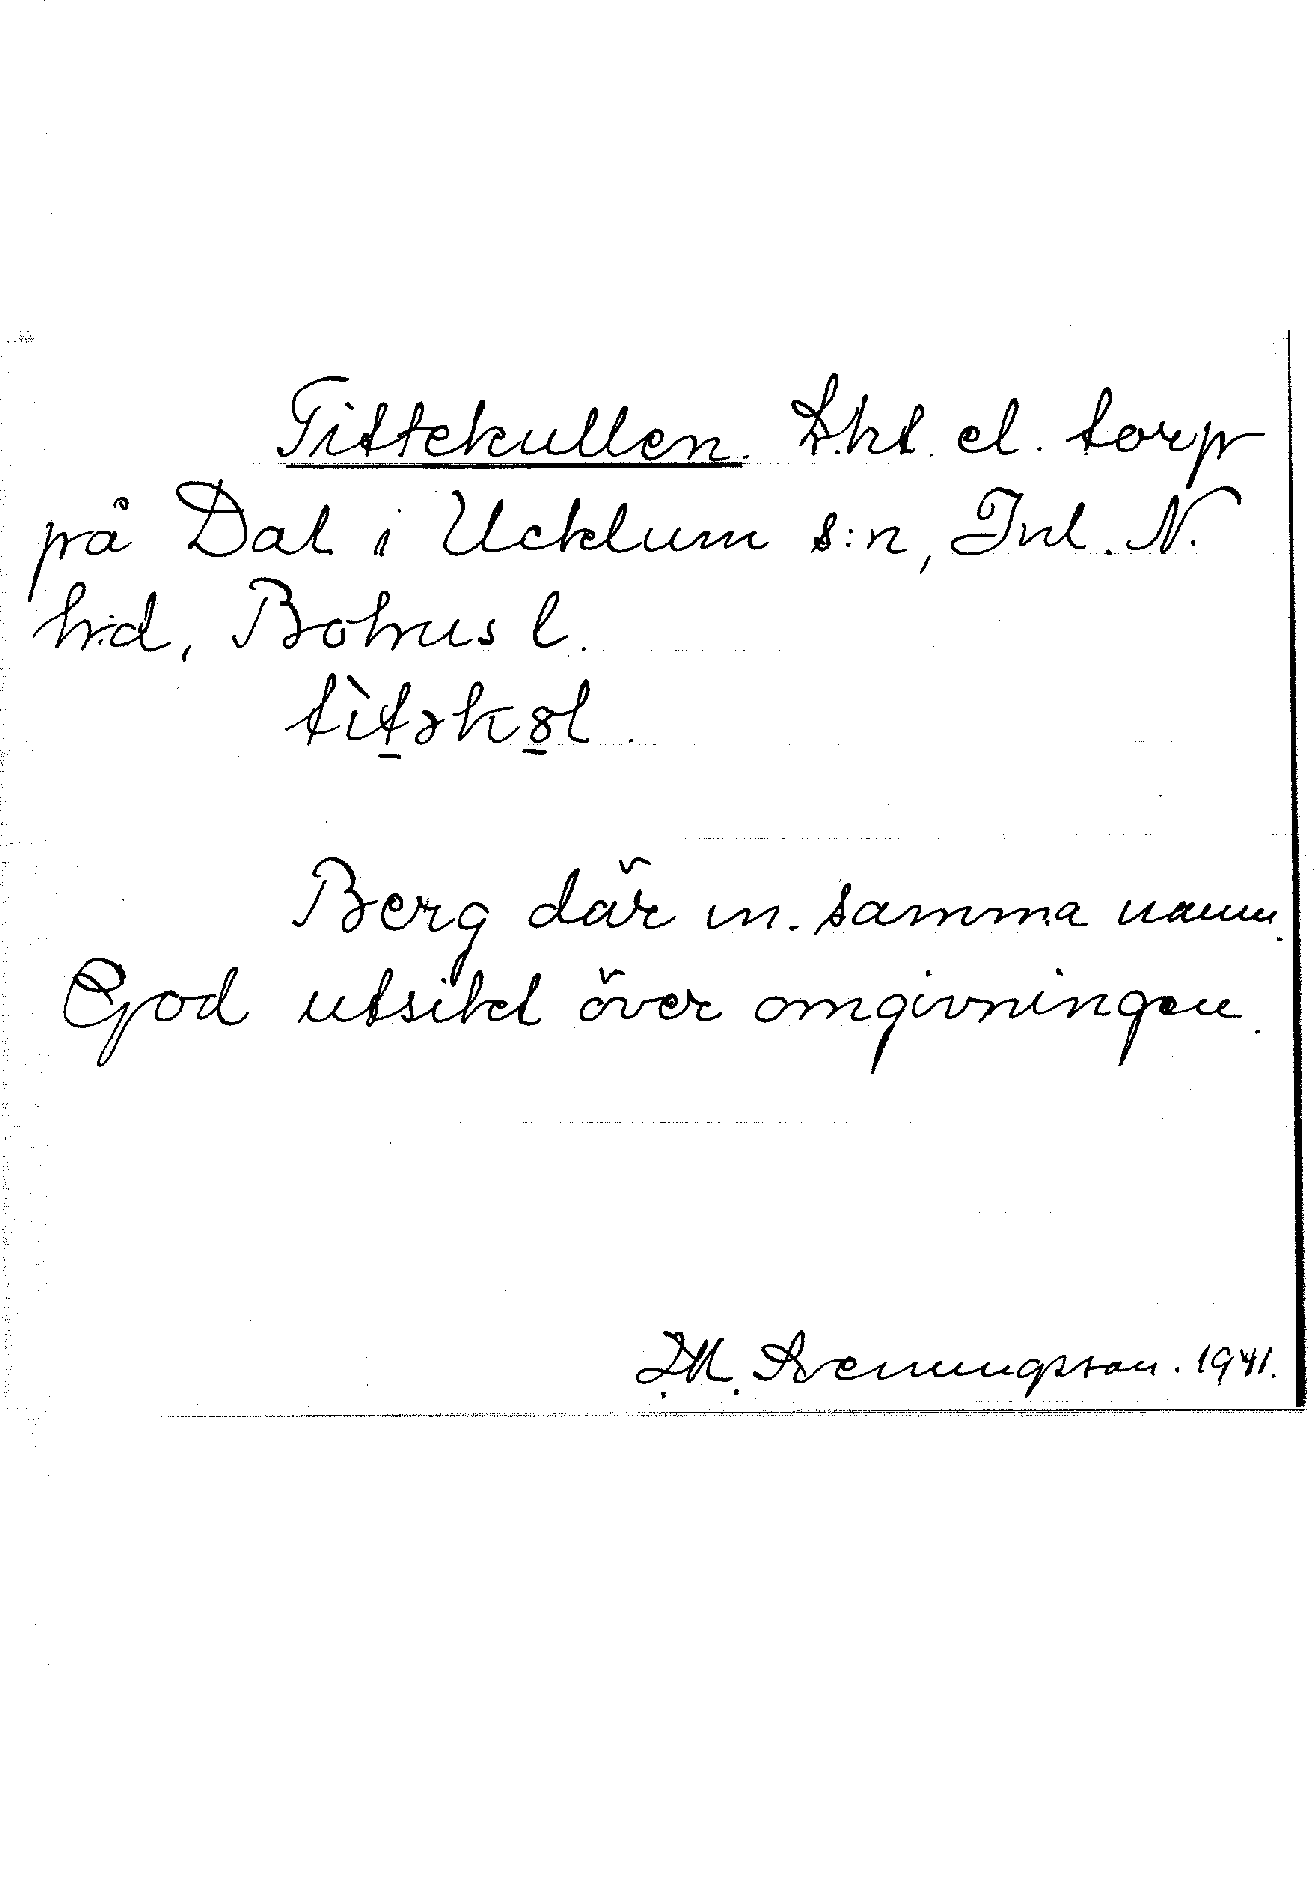 Tittekullen. Lht. el. torp
på Dal i Ucklum s:n, Inl. N.
h:d, Bohus l.
tìt̲ək8̲l.
Berg där m. samma namn.
God utsikt över omgivningen.
D.M. Svenungsson. 1941.